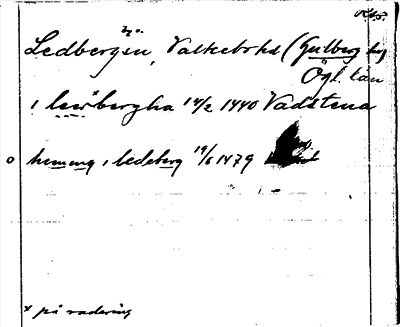 Ledbergen, Valkebrhd (Gullberg hrg
Ögl. län
i leedbergha 14/2 1440 Vadstena
o heming i ledeberg 19/6 1479
x på radering